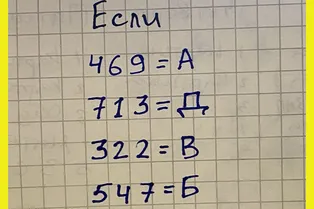 Если
469=А
713=Д
322=В
547=Б